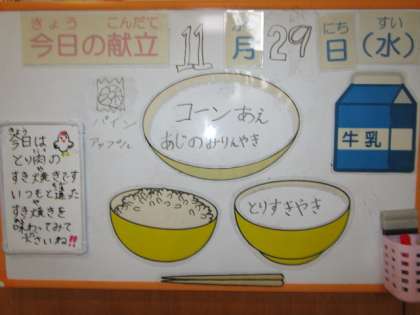 きょう こんだて
今日の献立 11月29日(水)
がつ にち すい
パイン
アップル
コーンあえ
あじのみりんやき
牛乳
とりすきやき
きょう
今日は
とり肉の
すき焼きです
いつもと違った
すき焼きを
味わってみて
ください
ね!!